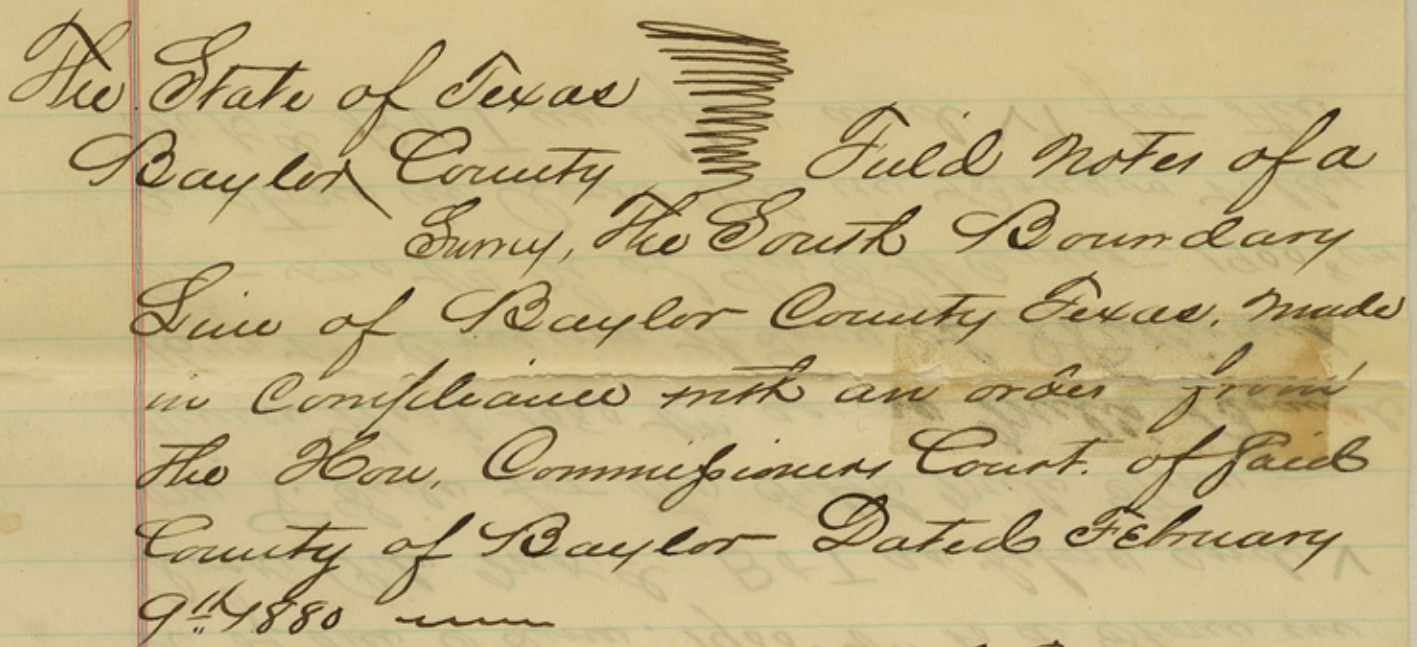 The State of Texas
Baylor County Field Notes of a
Survey, The South Boundary
Line of Baylor County Texas, made
in Compliance with an order from
the Hon, Commissioners Court. of Said
County of Baylor Dated February
9th 1880